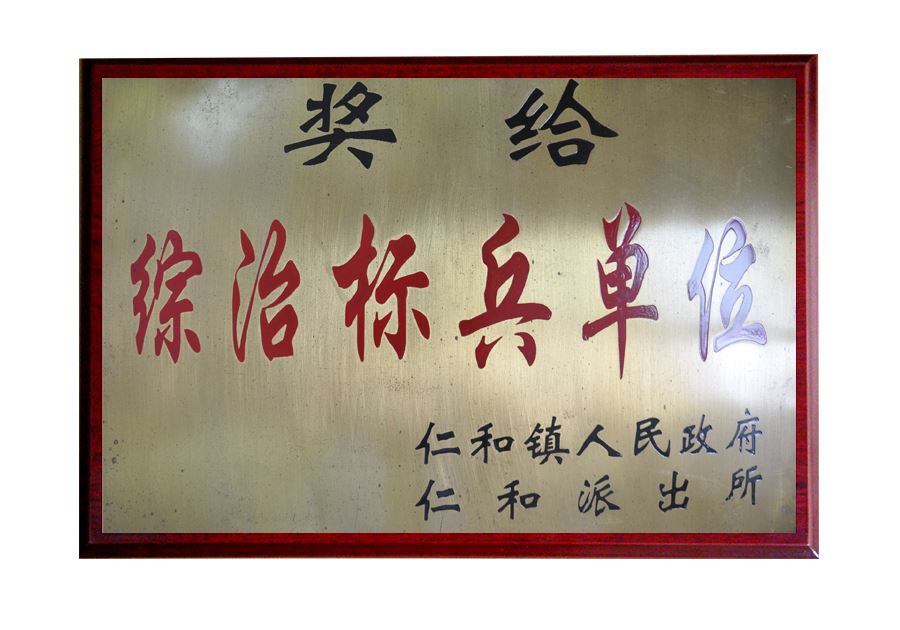 奖给
综治标兵单位
仁和镇人民政府
仁和派出所